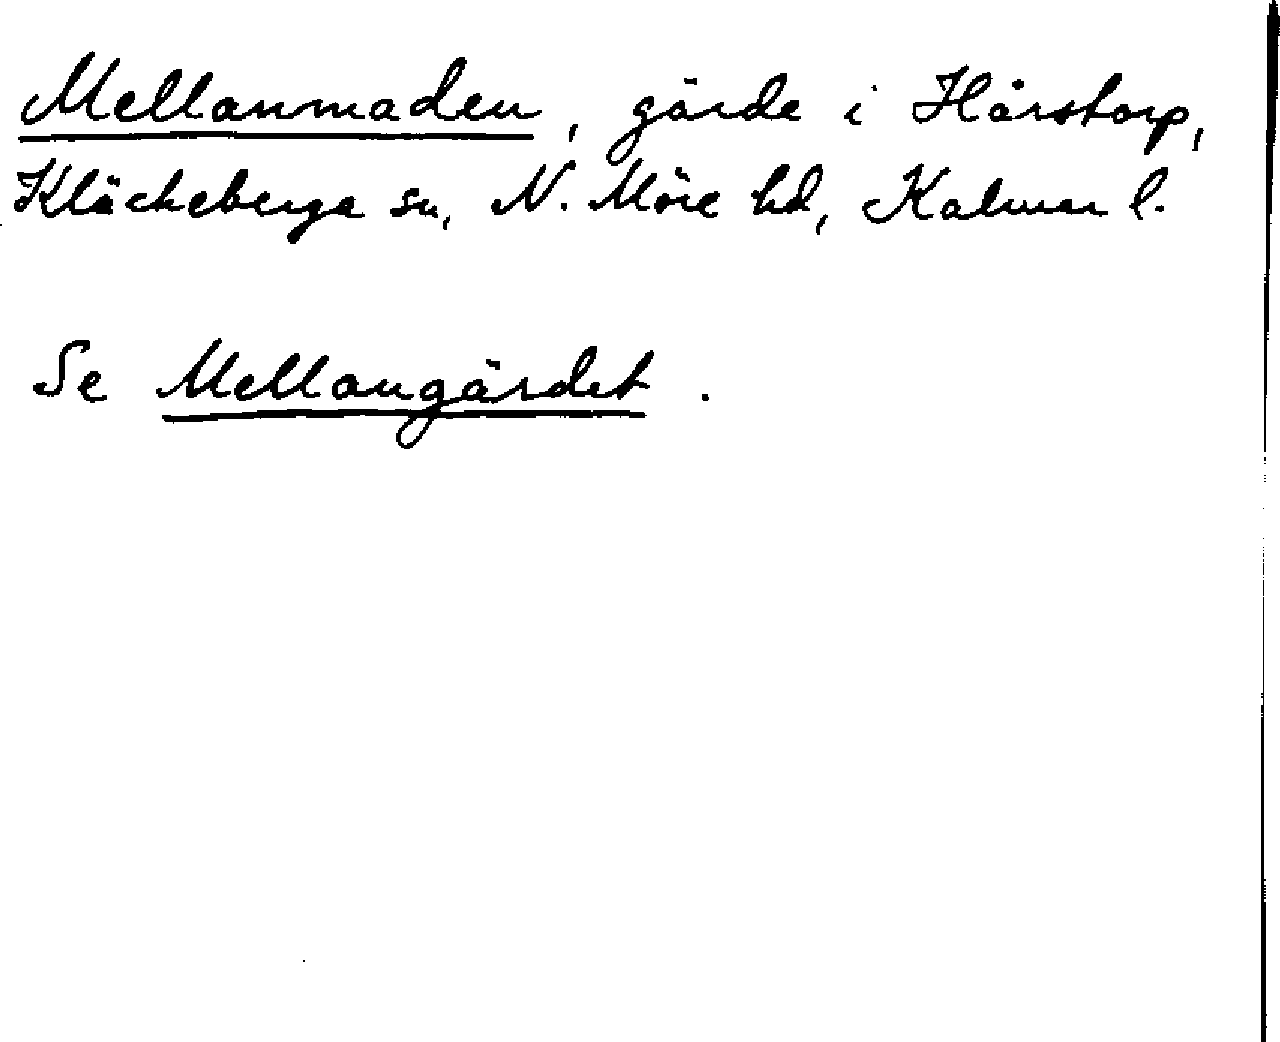 Mellanmaden, gärde i Hårstorp,
Kläckeberga sn, N. Möre hd, Kalmar l.
Se Mellangärdet.